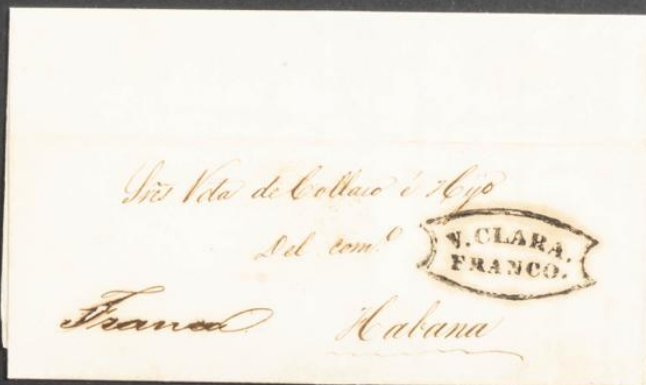 Sres Vda de Collazo é Hijo
Del com.o
V. CLARA.
FRANCO.
Franco
Habana